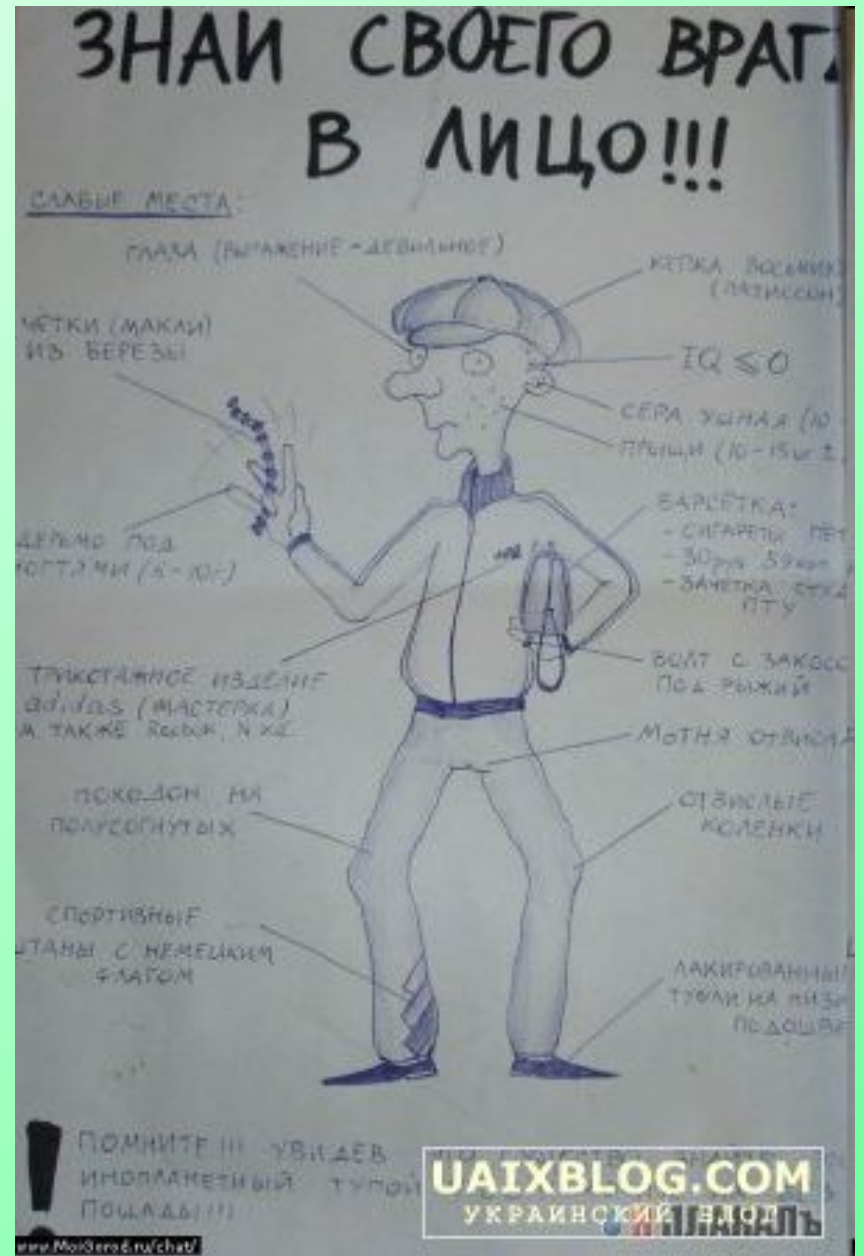 ЗНАЙ СВОЕГО ВРАГА
В ЛИЦО!!!
СЛАБЫЕ МЕСТА:
ГЛАЗА (ВЫРАЖЕНИЕ - ДЕБИЛЬНОЕ)
КЕПКА
(ПАТИССОН)
ЧЁТКИ (МАКЛИ)
ИЗ БЕРЕЗЫ
IQ ⩽ 0
СЕРА УШНАЯ (10
ПРЫЩИ (10-15
БАРСЕТКА:
- СИГАРЕТЫ
- 30руб
- ЗАЧЕТКА
ПТУ
ДЕРЬМО ПОД
НОГТЯМИ
ТРИКОТАЖНОЕ ИЗДЕЛИЕ
adidas (МАСТЕРКА)
А ТАКЖЕ Reebok,
БОЛТ С ЗАКОСОМ
ПОД РЫЖИЙ
МОТНЯ ОТВИСЛАЯ
ПОХОДОН НА
ПОЛУСОГНУТЫХ
ОТВИСЛЫЕ
КОЛЕНКИ
СПОРТИВНЫЕ
ШТАНЫ С НЕМЕЦКИМ
ФЛАГОМ
ЛАКИРОВАННЫЕ
ТУФЛИ НА
ПОДОШВЕ
! ПОМНИТЕ!!! УВИДЕВ ЭТО СУЩЕСТВО
ИНОПЛАНЕТНЫЙ ТУПОЙ
ПОЩАДЫ!!!
UAIXBLOG.COM
УКРАИНСКИЙ БЛОГ
ЯПЛАКАЛЪ
www.MoiGorod.ru/chat/